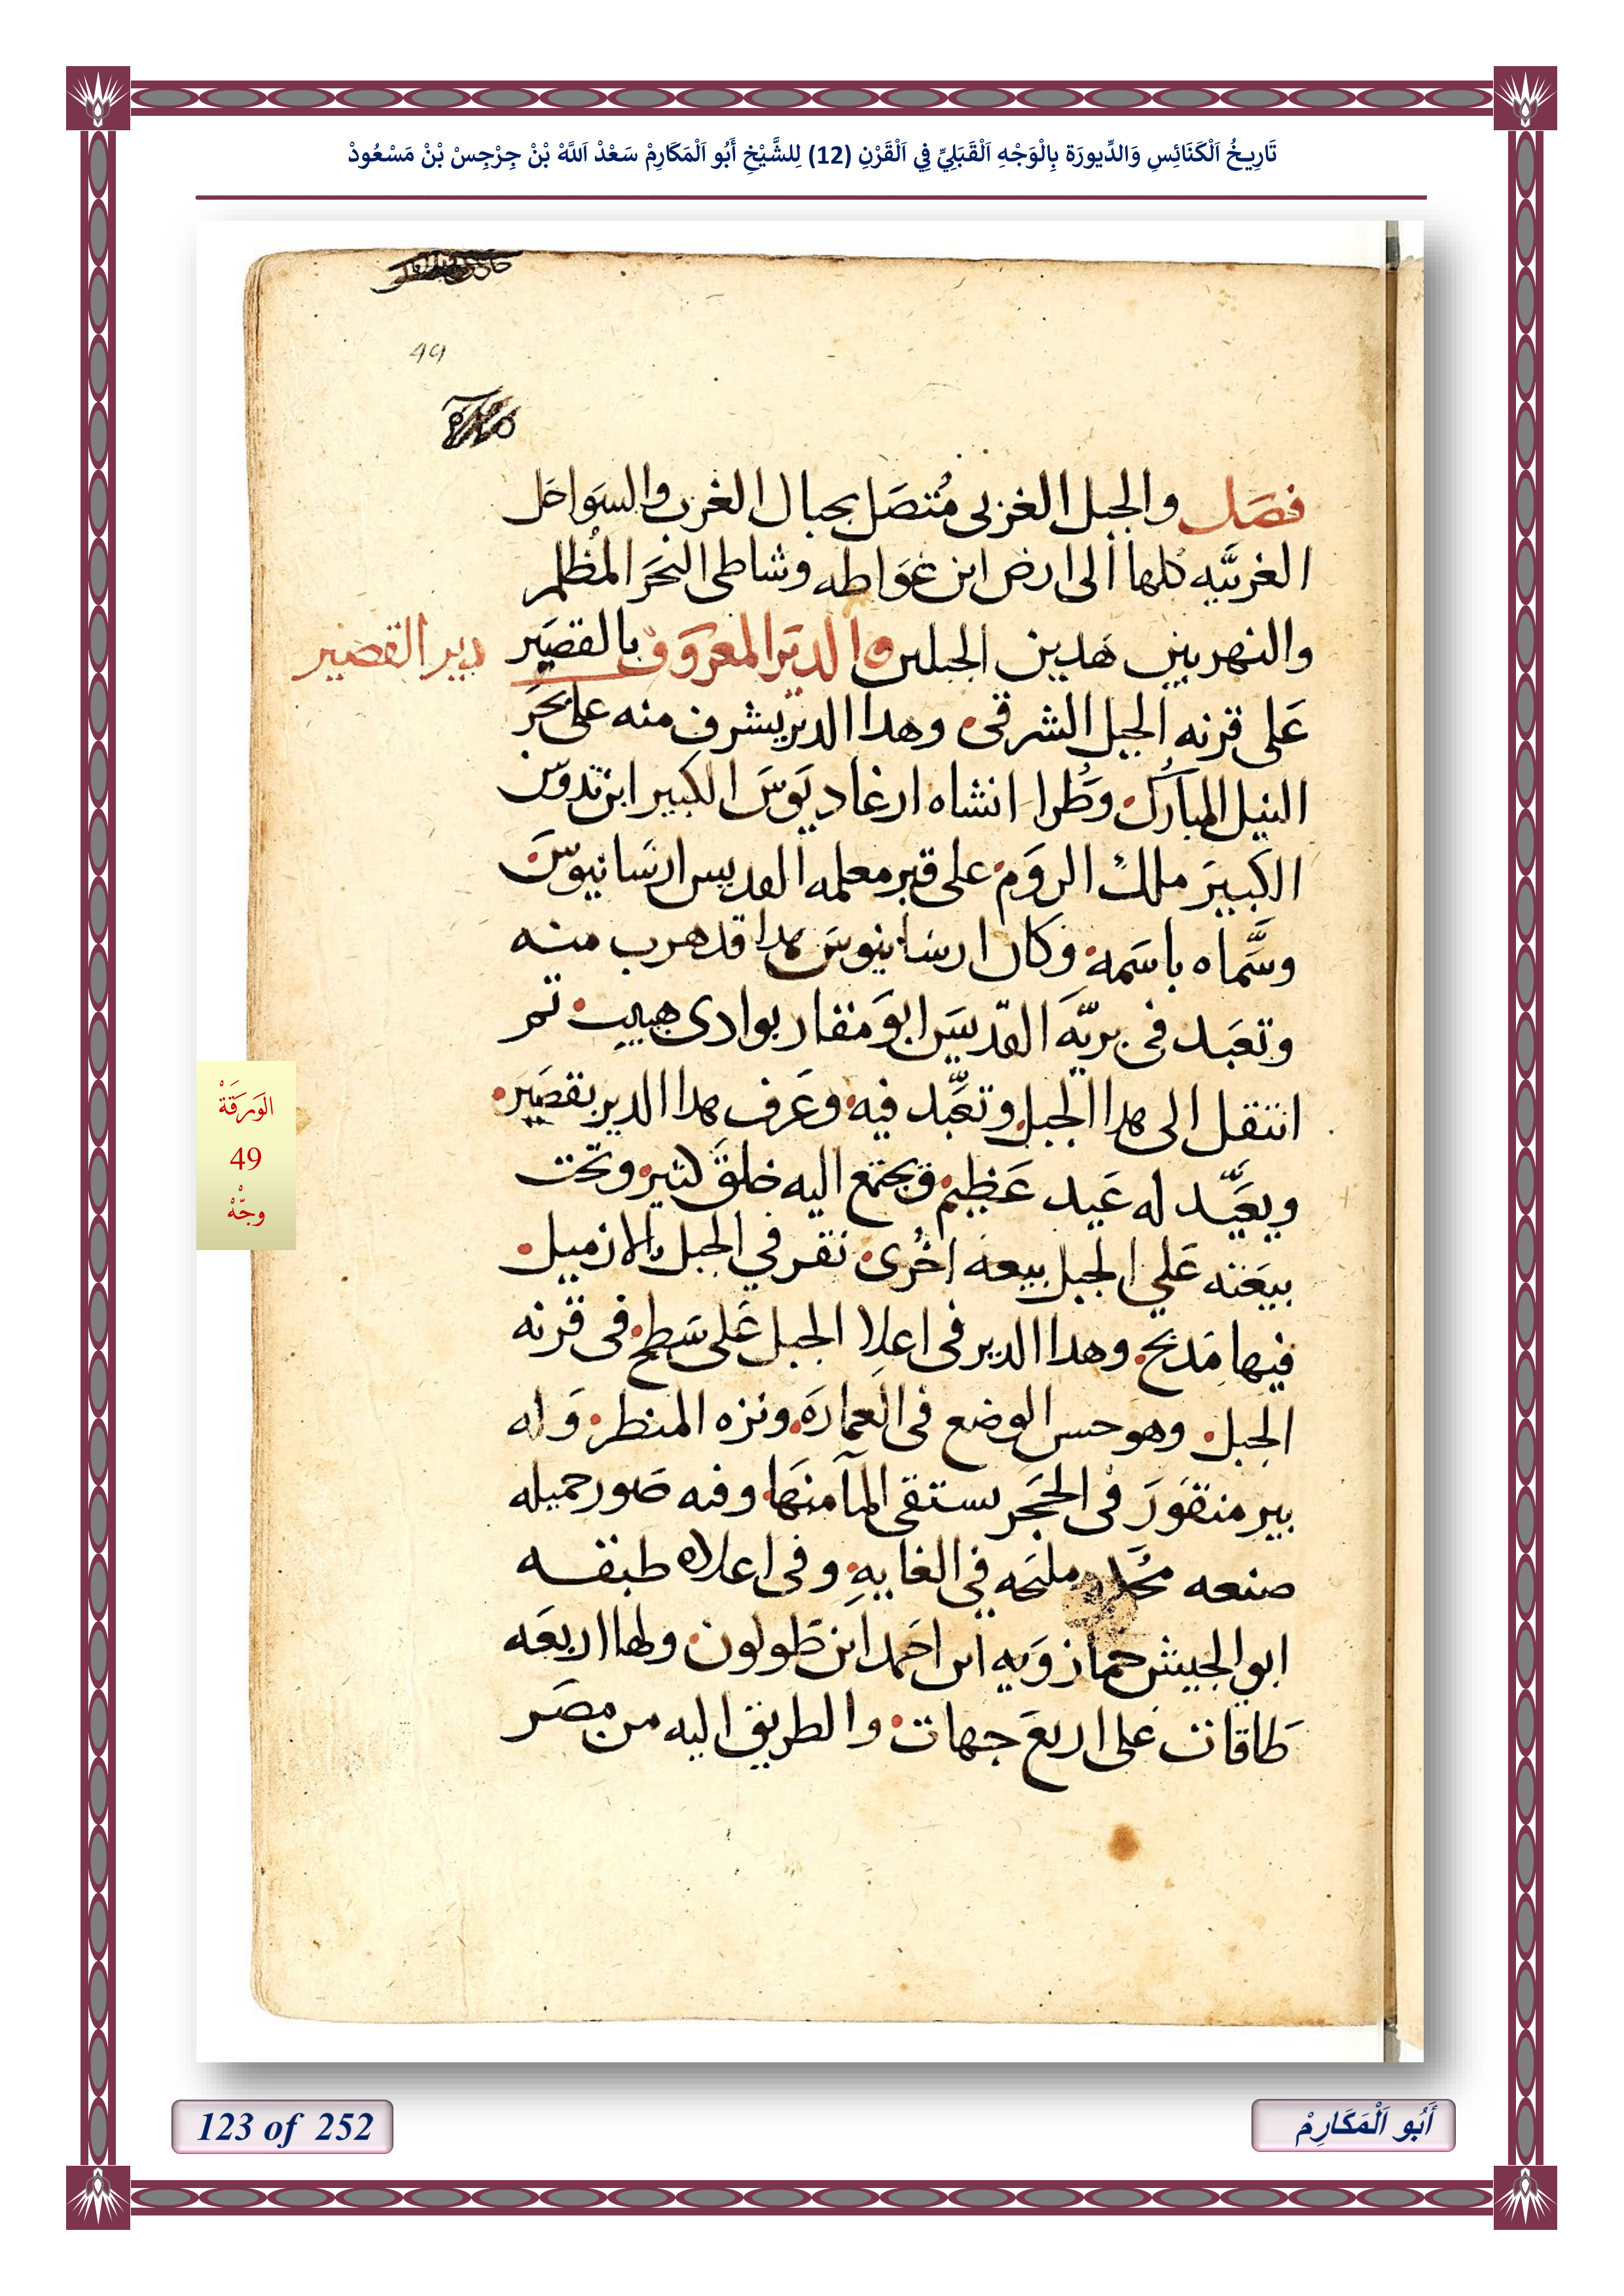 تَارِيخُ اَلْكَنَائِسِ وَالدِّيورَة بِالْوَجْهِ اَلْقَبَلِيِّ فِي اَلْقَرْنِ (12) لِلشَّيْخِ أَبُو اَلْمَكَارِمْ سَعْدْ اَللَّهْ بْنْ جِرْجِسْ بْنْ مَسْعُودْ
49
فصَل والجبل الغربى مُتصَل بجبال الغرب والسَواحَل
الغربيَّه كلها الى ارض ابن غوَاطه وشاطى البحَر المُظلم
والنهر بين هَدين الجبلين والديَر المعرَوَف بالقصَير
دير القصير
عَلى قرنه الجبل الشرقى وهدا الدير يشرف منه على بحَر
النيل المبارك وطُرا انشاه ارغاديوَسَ الكبير ابن تدوس
الكبيَر ملك الروَم على قبر معلمه القديس ارسَانيوسَ
وسَّماه باسَمه وكان ارسَانيوسَ هدا قد هرب منه
وتعَبد فى بريَّه القدّيسَ ابوَ مقار بوادى هبيب تم
انتقل الى هدا الجبل وتعَّبد فيه وعَرف هدا الدير بقصَير
ويعَيَّد له عَيد عَظيم ويجتمع اليه خلقَ كثير وتحت
بيعَته عَلي الجبل بيعه اخُرى نقر في الجبل بالازميل
فيها مَدبح وهدا الدير فى اعلا الجبل عَلى سَطح فى قرنه
الجبل وهو حسن الوضع فى العمارَه ونزه المنظر وَله
بير منقوَر فى الحجَر يستقى المآ منهَا وفيه صَور جميله
صنعه مليحَه في الغايه وفى اعلاه طبقه
ابو الجيش خمارَوَيه ابن احَمد ابن طَولون ولها اربعَه
طَاقات عَلى اربعَ جهات والطريق اليه من مصَر
الوَرَقَةْ
49
وجّهْ
123 of 252
أَبُو اَلْمَكَارِمْ